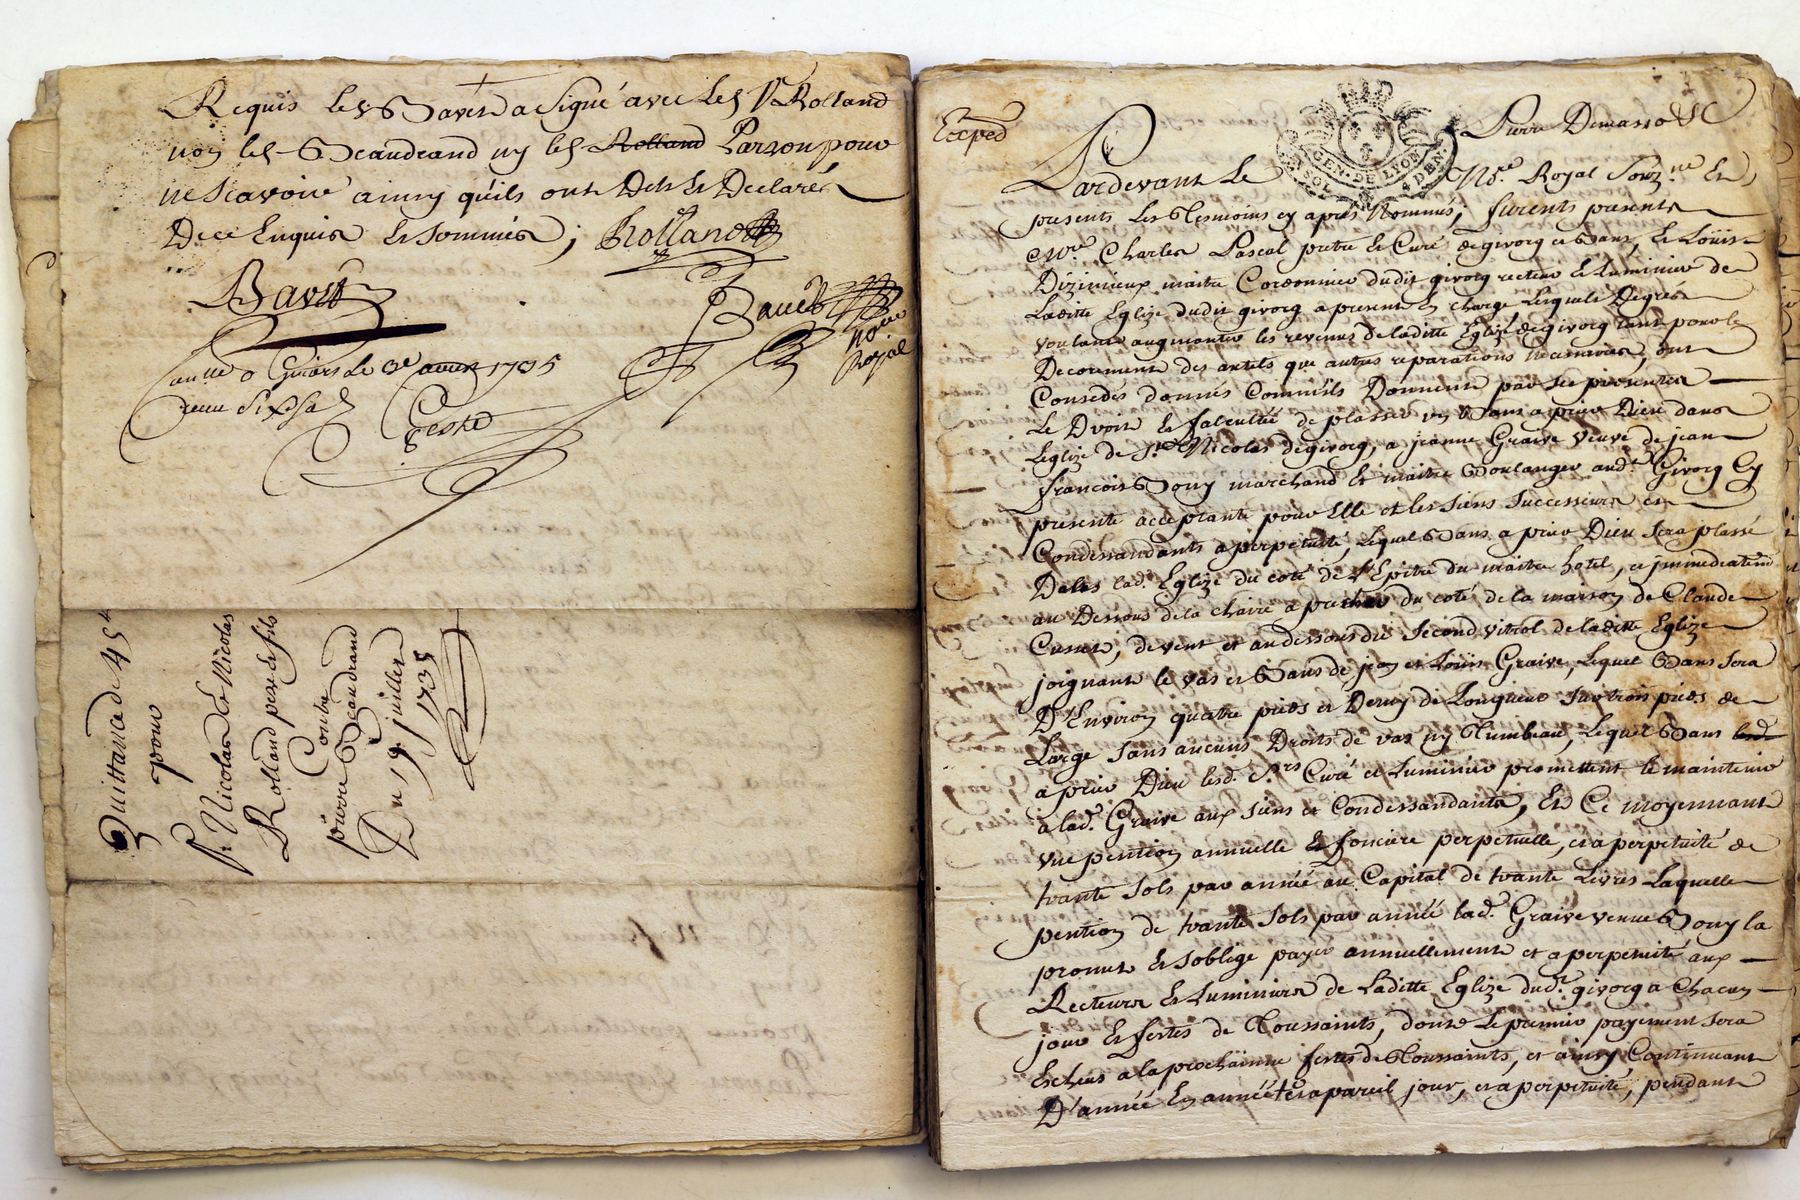 Requis led. Bavet a signé avec led. Sr. Rolland
non led. Beaudrand ny led. Rolland Parron pour
ne scavoir ainsy quils ont Dit et Declarés
De ce Enquis et sommés; Rolland
Bavet
Baudet
Nore
Royal
Givors Le 3e 1735
Receu six s.
Quittance de 45 L
pour
Sr. Nicolas et Nicolas
Rolland pere et fils
Contre
pierre Beaudrand
Du 19 juillet
1735
Exped
GEN. DE LYON
4 DEN.
Pierre Demasso &c
Pardevant Le No.re Royal Souz.né Et
presents Les Tesmoins cy aprés Nommés; furents presents
Mre. Charles Pascal pretre et Curé de givorg et Bans, et Loüis
Dizimieux maitre Cordonnier dudit givorg recteur et Luminier de
Laditte Eglize dudit givorg a present En charge Lesquels Degrés
voulant augmenter les revenus de laditte Eglize de givorg tant pour le
Decorement des autels que autres reparations necessaires, ont
Consedés donnés Comme ils Donnent par ses presentes
Le Droit et faculté de plasser un Banc a prier Dieu dans
Leglize de St. Nicolas de givorg, a jeanne Graive veuve de jean
francois Bony marchand et maitre Boulanger aud.t Givorg Cy
presente acceptante pour Elle et les siens successeurs et
Condessandants a perpetuité, lequel Banc a prier Dieu sera plassé
Dans lad. Eglize du coté de l'Epitre du maitre hotel, et jmmediatemt
au Dessous de la chaire a precher du coté de la maison de Claude
Cusset, devent et au dessous du second vitrol de laditte Eglize
joignant le vas et Banc de jean et Loüis Graive, Lequel Banc sera
D'Environ quatre pieds et Demy de Longueur sur trois pieds de
Large sans aucuns Droits de vas ny Tumbeau, Lequel Banc lesd.
a prier Dieu lesd. Srs. Curé et Luminier promettent le maintenir
a lad. Graive aux siens et Condessandants, Et Ce moyennant
vne pention annuelle et fonciere perpetuelle, et a perpetuité de
trante sols par année au Capital de trante Livres Laquelle
pention de trante sols par année lad. Graive veuve Bony la
promet et soblige payer annuellement et a perpetuité aux
Recteurs et Luminiers de Laditte Eglize dud.t givorg a Chacun
jour et festes de Toussaints, dont Le premier payement sera
Escheus a la prochainne festes de Toussaints, et ainsy Continuant
D'année En années a pareil jour, et a perpetuité, pendant